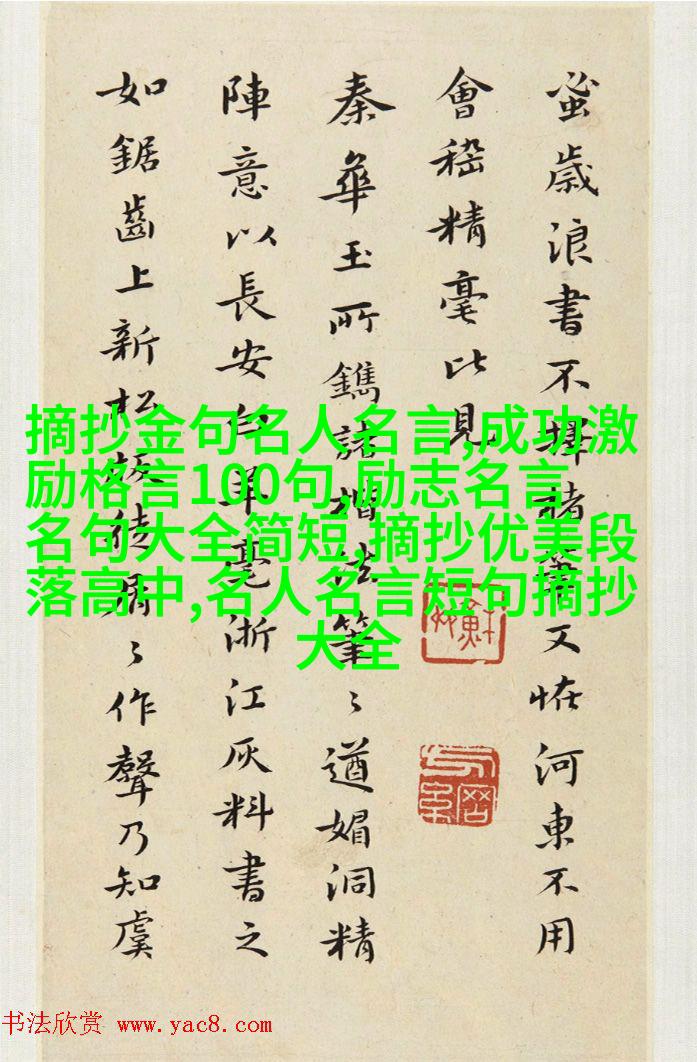 蚤歲浪書不擇楮筆又恠河東不用
會稽精毫比見
秦華玉所鐫諸楷法筆〻遒媚洞精
陣意以長安白羊毫浙江灰料書之
如鋸齒上新松板徒屑〻作聲乃知虞
摘抄金句名人名言,成功激
励格言100句,励志名言
名句大全简短,摘抄优美段
落高中,名人名言短句摘抄
大全
书法欣赏 www.yac8.com